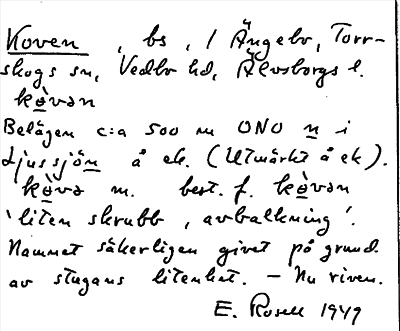 Koven, bs, / Ängebr, Torr-
skogs sn, Vedbo hd, Älvsborgs l.
kòvən
Belägen c:a 500 m ONO n i
Ljussjön å ek. (Utmärkt å ek).
kòvə m. best. f. kòvən
'liten skrubb, avbalkning'.
Namnet säkerligen givet på grund
av stugans litenhet. – Nu riven.
E. Rosell 1949